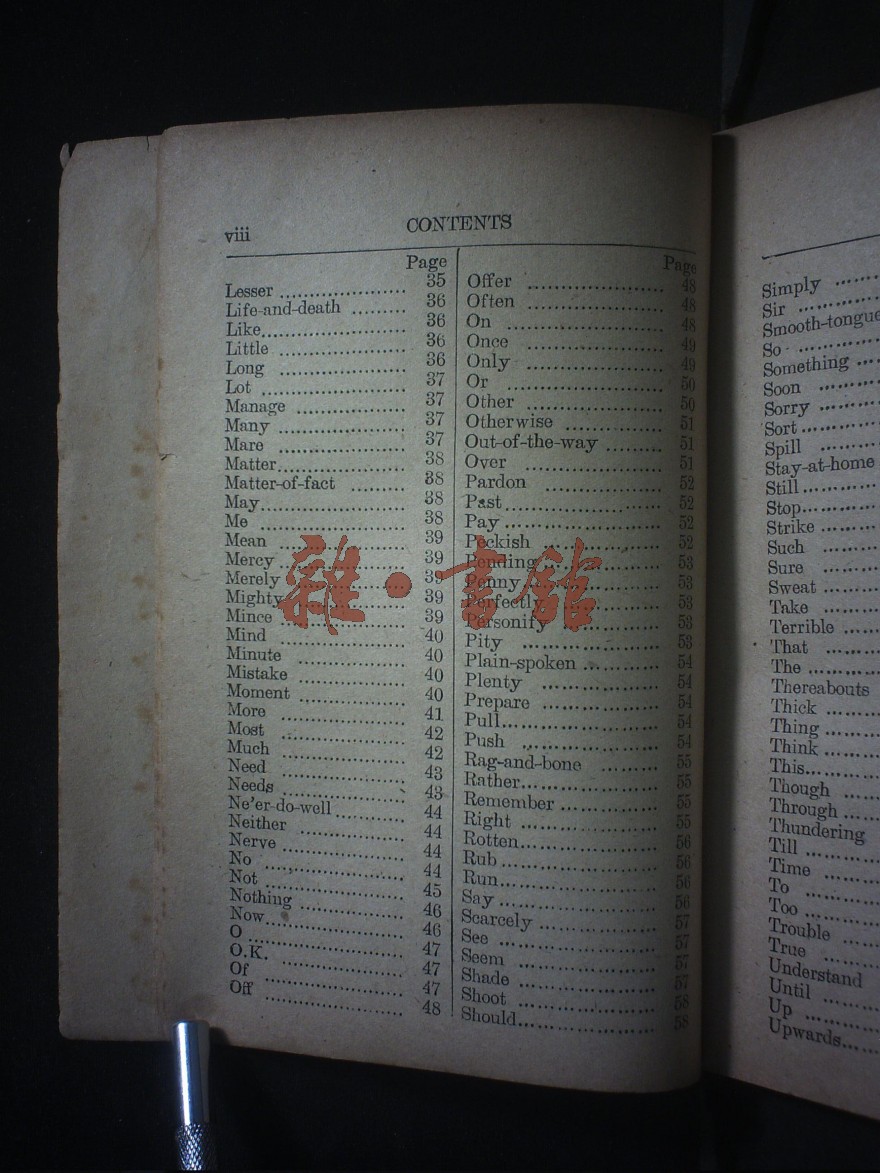 viii CONTENTS
Page
Lesser .................... 35
Life-and-death ......... 36
Like....................... 36
Little .................... 36
Long ..................... 36
Lot ....................... 37
Manage .................. 37
Many .................... 37
Mare ..................... 37
Matter.................... 38
Matter-of-fact ........ 38
May....................... 38
Me ........................ 38
Mean .................... 39
Mercy .................... 39
Merely ................... 39
Mighty................... 39
Mince .................... 39
Mind ..................... 40
Minute .................. 40
Mistake .................. 40
Moment ................. 40
More ..................... 41
Most ..................... 42
Much .................... 42
Need ..................... 43
Needs .................... 43
Ne'er-do-well ........... 44
Neither .................. 44
Nerve .................... 44
No ........................ 44
Not ....................... 45
Nothing ................. 46
Now....................... 46
O .......................... 47
O.K. ..................... 47
Of ........................ 47
Off ....................... 48
Page
Offer ..................... 48
Often .................... 48
On ........................ 48
Once ..................... 49
Only ..................... 49
Or ........................ 50
Other .................... 50
Otherwise ............... 51
Out-of-the-way ........ 51
Over ..................... 51
Pardon .................. 52
Past....................... 52
Pay........................ 52
Peckish .................. 52
Pending.................. 53
Penny .................... 53
Perfectly ................. 53
Personify ................ 53
Pity ...................... 53
Plain-spoken ........... 54
Plenty ................... 54
Prepare .................. 54
Pull....................... 54
Push ..................... 54
Rag-and-bone ......... 55
Rather.................... 55
Remember .............. 55
Right .................... 55
Rotten.................... 56
Rub ...................... 56
Run....................... 56
Say ....................... 56
Scarcely ................. 57
See ....................... 57
Seem ..................... 57
Shade .................... 57
Shoot .................... 58
Should................... 58
Simply ......
Sir ..........
Smooth-tongue
So ..........
Something ....
Soon ........
Sorry ........
Sort..........
Spill ........
Stay-at-home
Still..........
Stop..........
Strike ........
Such ........
Sure ........
Sweat ........
Take ........
Terrible .....
That ........
The ..........
Thereabouts
Thick ........
Thing ........
Think ........
This..........
Though ......
Through ......
Thundering
Till ..........
Time ........
To ..........
Too ..........
Trouble .....
True ........
Understand
Until ........
Up ..........
Upwards......
雜·書館